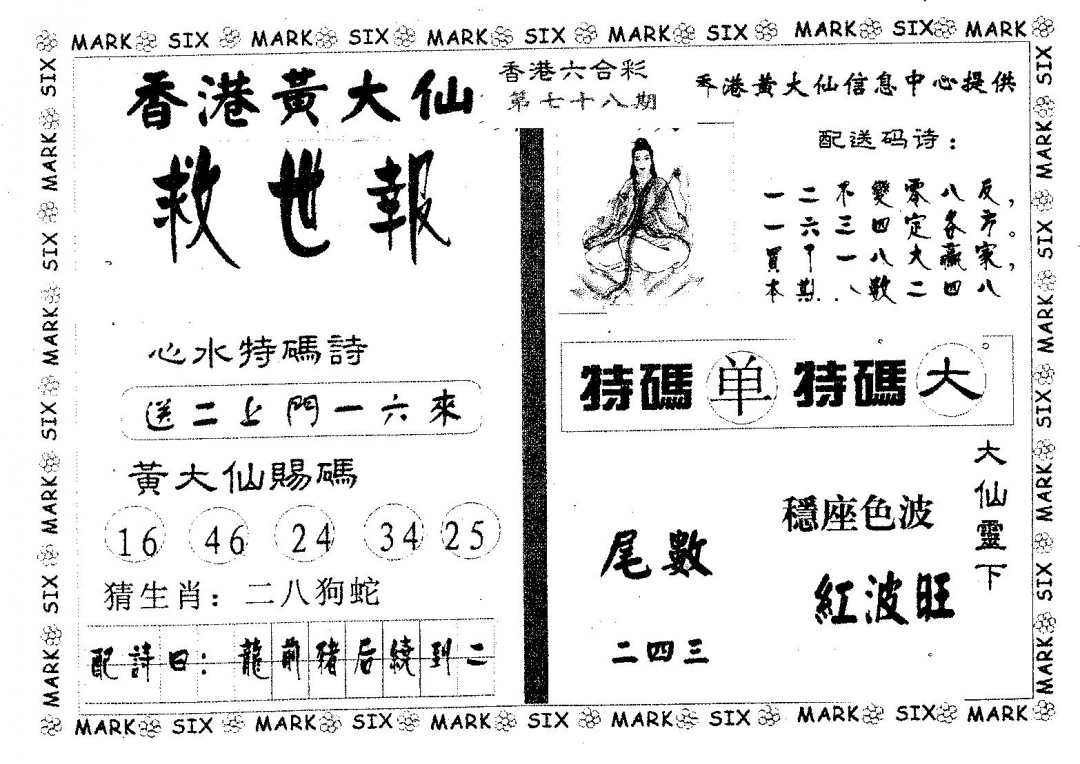 MARK SIX MARK SIX MARK SIX MARK SIX MARK SIX MARK
香港黃大仙
救世報
香港六合彩
第七十八期
香港黃大仙信息中心提供
配送码诗：
一二不變零八反，
一六三四定各方。
買 一八大贏家，
本期 數二四八
心水特碼詩
送二上門一六來
黃大仙賜碼
16 46 24 34 25
猜生肖：二八狗蛇
配詩曰：龍前豬后繞到二
特碼单 特碼大
尾數
二四三
穩座色波
紅波旺
大仙靈下
MARK SIX MARK SIX MARK SIX MARK SIX MARK SIX MARK
SIX MARK SIX MARK SIX MARK SIX MARK
SIX MARK SIX MARK SIX MARK SIX MARK